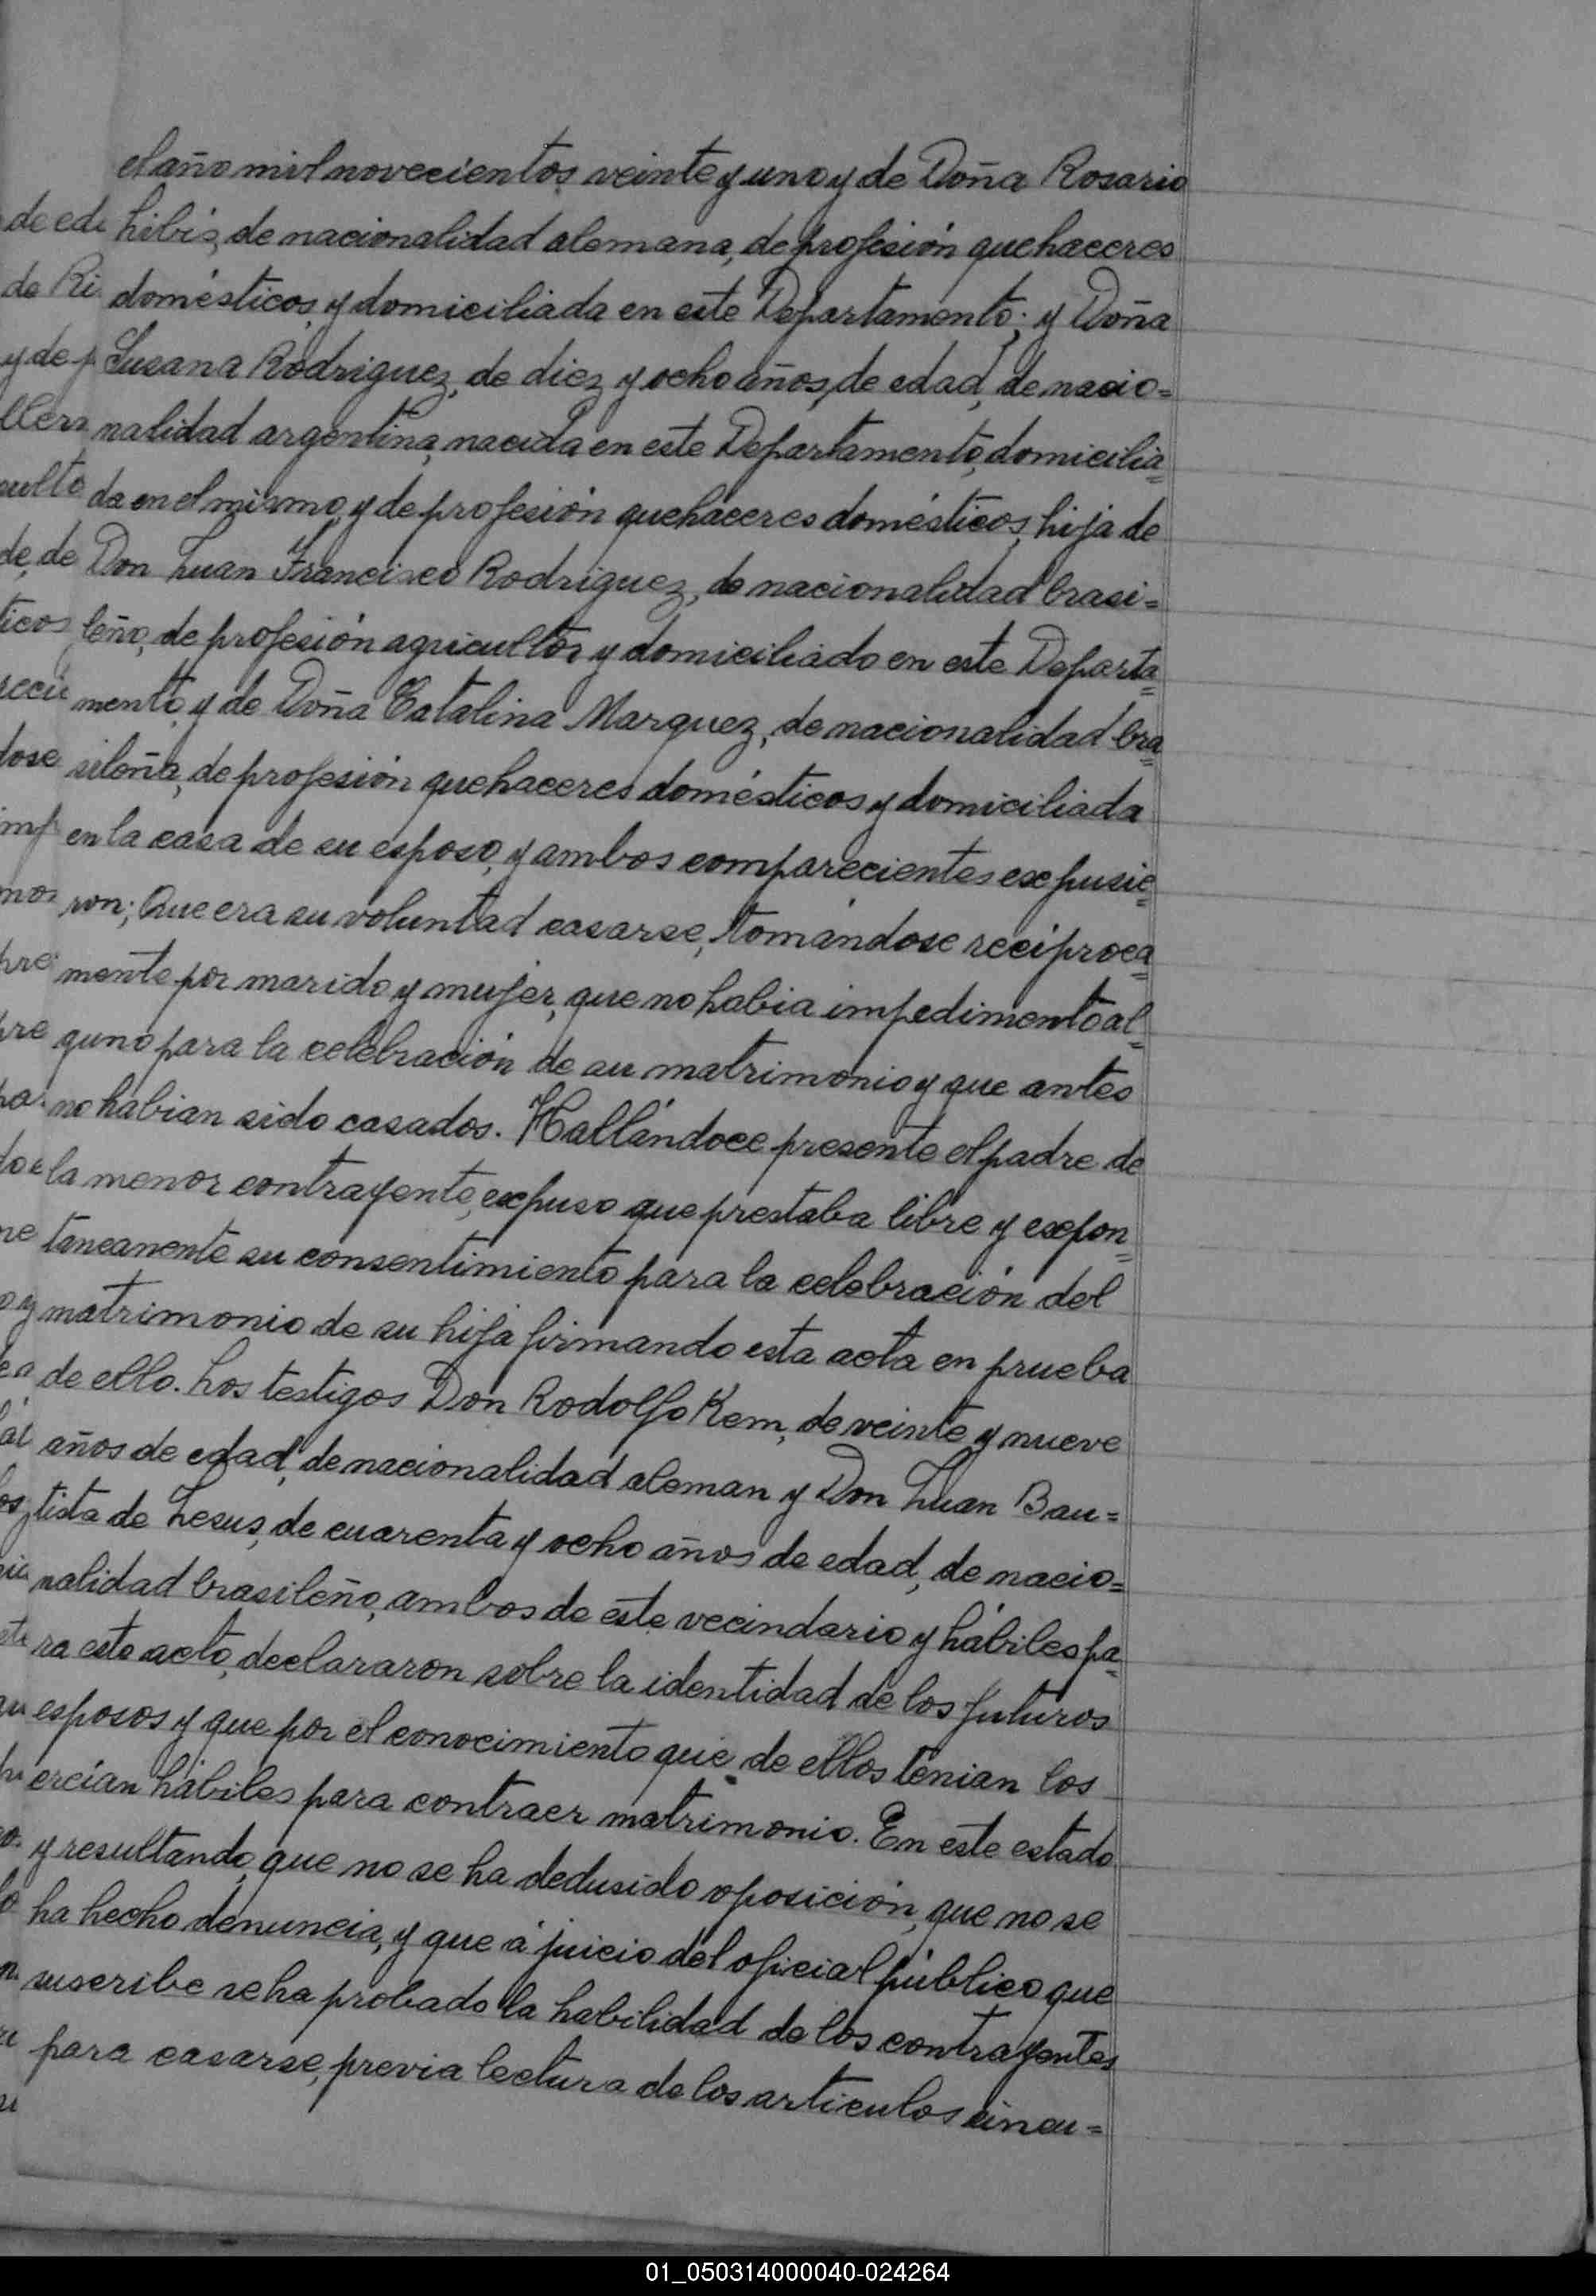 el año mil novecientos veinte y uno y de Doña Rosario
Libis, de nacionalidad alemana, de profesión quehaceres
domésticos, y domiciliada en este Departamento; y Doña
Susana Rodriguez, de diez y ocho años, de edad, de nacio=
nalidad argentina, nacida en este Departamento, domicilia=
da en el mismo, y de profesión quehaceres domésticos, hija de
Don Juan Francisco Rodriguez, de nacionalidad brasi=
leño, de profesión agricultor y domiciliado en este Departa=
mento, y de Doña Catalina Marquez, de nacionalidad bra=
sileña, de profesión quehaceres domésticos y domiciliada
en la casa de su esposo, y ambos comparecientes expusie=
ron; Que era su voluntad casarse, tomándose recíproca=
mente por marido y mujer, que no habia impedimento al=
guno para la celebración de su matrimonio y que antes
no habian sido casados. Hallándoce presente el padre de
la menor contrayente, expuso que prestaba libre y expon=
taneamente su consentimiento para la celebración del
matrimonio de su hija firmando esta acta en prueba
de ello. Los testigos Don Rodolfo Kem, de veinte y nueve
años de edad, de nacionalidad aleman y Don Juan Bau=
tista de Jesus, de cuarenta y ocho años de edad, de nacio=
nalidad brasileño, ambos de este vecindario y hábiles pa=
ra este acto, declararon sobre la identidad de los futuros
esposos y que por el conocimiento que de ellos tenian los
creían hábiles para contraer matrimonio. En este estado
y resultando, que no se ha dedusido oposición, que no se
ha hecho denuncia, y que á juicio del oficial público que
suscribe se ha probado la habilidad de los contrayentes
para casarse, previa lectura de los articulos cincu=
01_050314000040-024264